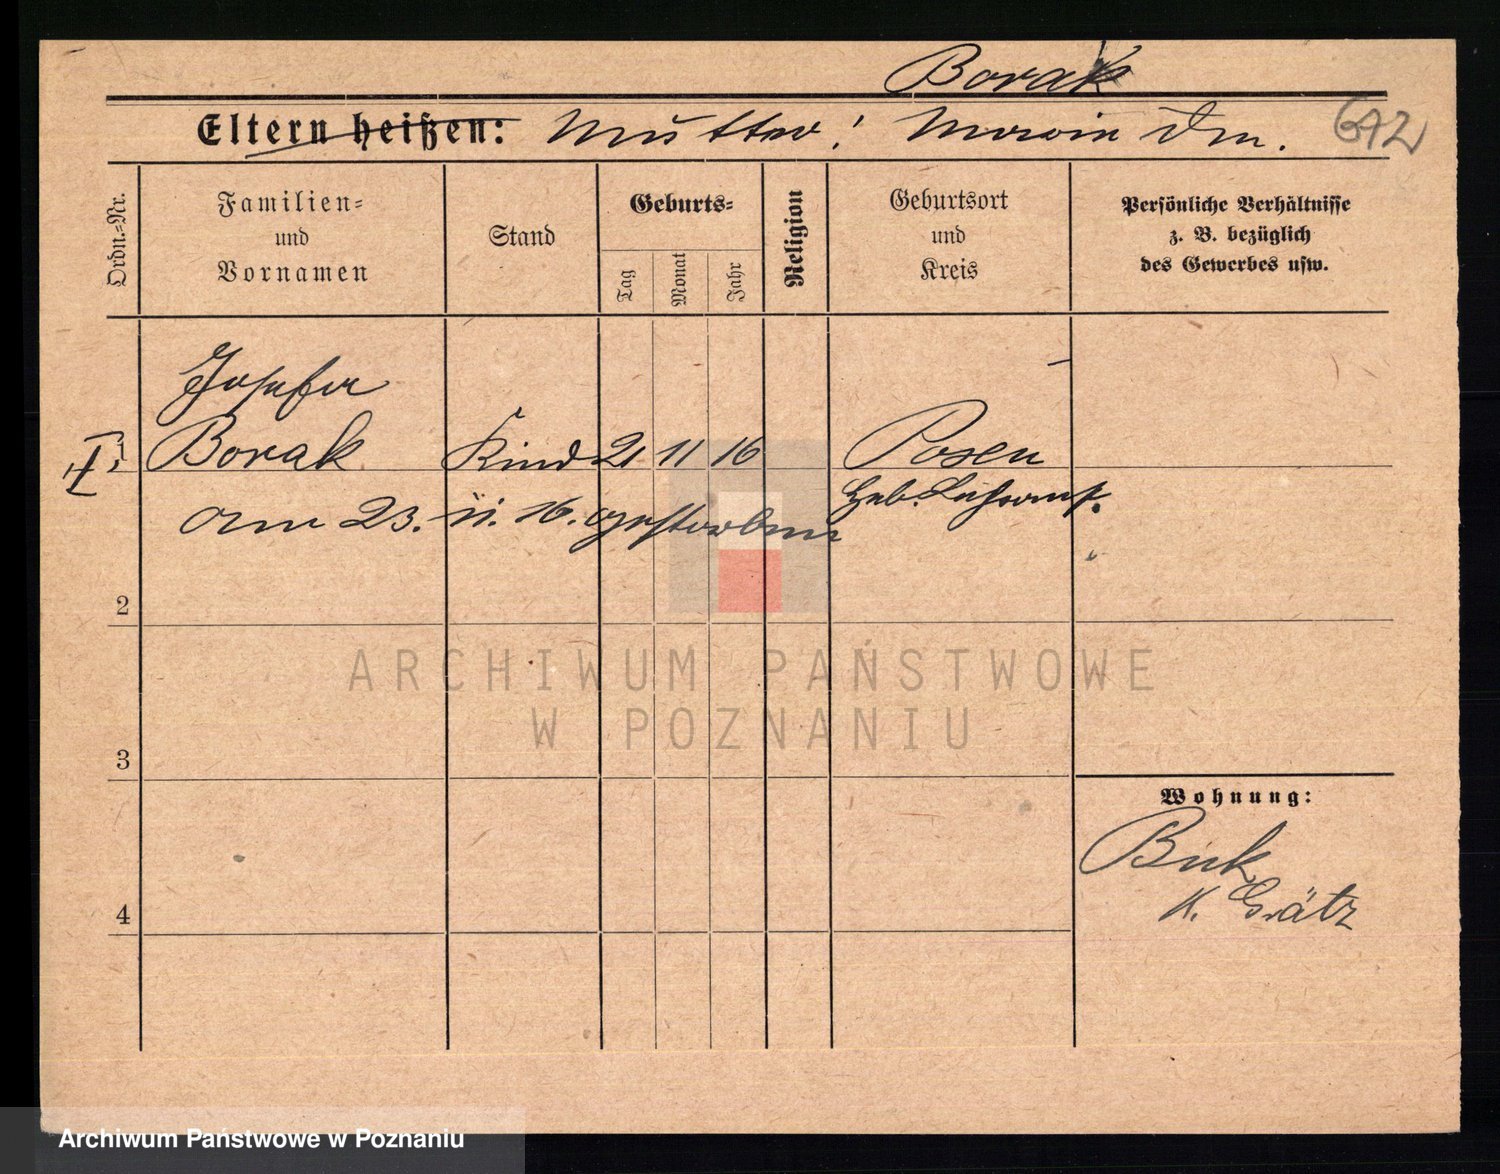 Borak
Eltern heißen: Mutter: Marie dm. 642
Ordn.-Nr.
Familien-
und
Vornamen
Stand
Geburts-
Tag
Monat
Jahr
Religion
Geburtsort
und
Kreis
Persönliche Verhältnisse
z. B. bezüglich
des Gewerbes usw.
Josefa
I. 1 Borak Kind 21 11 16 Posen
Heb. Lehranst.
am 23. 11. 16. gestorben
2
3
4
Wohnung:
Buk
K. Grätz
ARCHIWUM PAŃSTWOWE
W POZNANIU
Archiwum Państwowe w Poznaniu